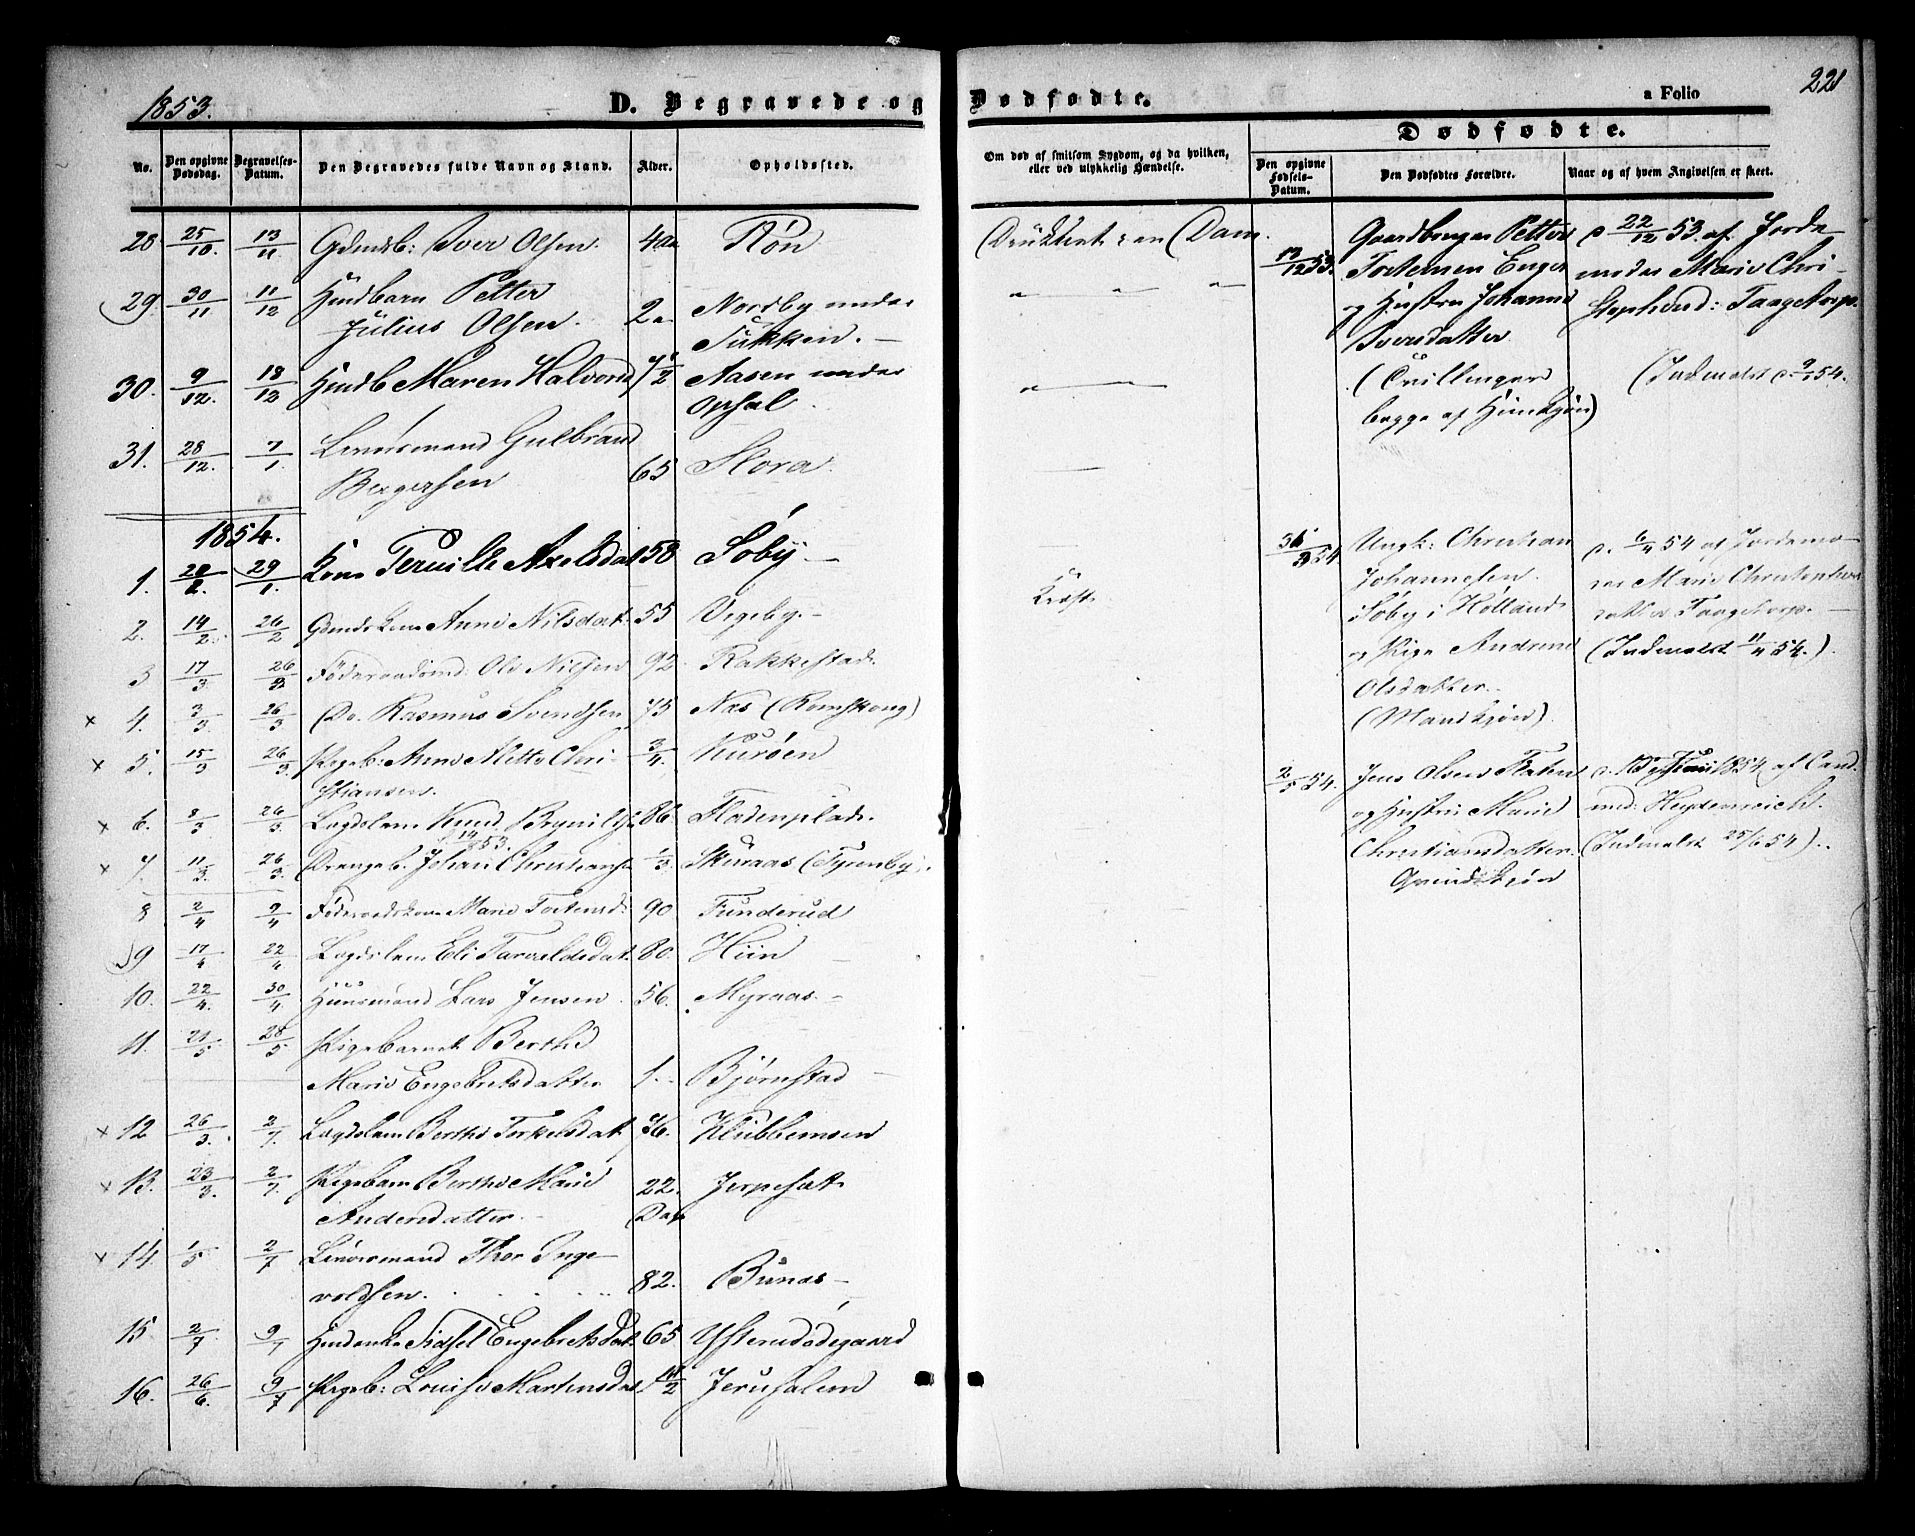 1853.
D. Begravede og Dødfødte.
a Folio
221
Dødfødte.
No.
Den opgivne Dødsdag.
Begravelses-Datum.
Den Begravedes fulde Navn og Stand.
Alder.
Opholdssted.
Om død af smitsom Sygdom, og da hvilken, eller ved ulykkelig Hændelse.
Den opgivne Fødsels-Datum.
Den Dødfødtes Forældre.
Naar og af hvem Angivelsen er skeet.
28 25/10. 13/11 Gdmdsb: Iver Olsen. 4 a Røn Druknet i en Dam.
29. 30/11 11/12 Hmdbarn Petter
Julius Olsen. 2 a. Nordby under
Tukken. —
30. 9/12. 18/12 Hmdb Maren Halvorsd 7 1/2 Aasen under
Opsal.
31. 28/12. 7/1. Leuvsmand Gulbrand
Bergersen 65 Slora.
1854.
1. 29/1. Kone Axelsdat 58 Søby —
2. 14/2. 26/2 Gdmds Kone Anne Nilsdat. 55 Vegeby. — Kræft
3 17/3 26/3 Føderaadsmd: Ole Nielsen 92. Rakkestad.
x 4. 3/3 26/3 Do. Rasmus Svendsen 75 Næs (Romskong)
x 5. 15/3 26/3. Pigeb: Anne Mette Chri-
stiansen. 3/4. Kurøen
x 6. 8/3 26/3. Lægdslem Knud 86 Fladenplads.
14/53.
x 7. 11/3. 26/3 Drengeb. Johan Christians 1/3. Skuraas (Fyrenby).
8 2/4 9/4 Føderaadskone Marie Torstensd: 90 Funderud
9 17/4 22/4 Lægdslem Eli Tarvaldsdat. 80. Hiin
10. 22/4. 30/4 Huusmand Lars Jensen. 56. Myraas. —
11. 21/5 28/5 Pigebarnet Berthe
Marie Engebretsdatter 1. Bjørnstad —
x 12 26/3. 2/7. Lægdslem Berthe Torkelsdat. 76. Klubbemoen
x 13. 23/3. 2/7. Pigebarn Berthe Marie
Andersdatter. — 22. Dage Jerpesæt
x 14. 1/5 2/7 Leuvsmand Thor Inge-
voldsen. 82. Bunæs —
15. 2/7 9/7 Sidsel Engebretsdat. 65 Ysterudødegaard
16. 26/6. 9/7 Pigeb: Louise Martinsdat 1/2 Jerusalem
12/12 53. Gaardbruger Petter
Torstensen Enger
og Hustru Johanne
Iversdatter
(Tvillinger
begge af Hunkjøn)
d. 22/12 53. af Jorde-
moder Marie Chri-
stophersd: Taagetorp.
(Indmeldt d. 9/1 54.
31/3 54 Ungk: Christian
Johannesen
Søby i Høland
og Pige Andrine
Olsdatter.
(Mandkjøn).
d. 6/4 54 af Jordemo-
der Marie Christophers
datter Taagetorp. —
(Indmeldt 11/4 54.)
2/5 54. Jens Olsen Flaten
og Hustru Marie
Christiansdatter.
Qvindekjøn
1854 af Cand.
med: Heydenreich.
(Indmeldt 25/6 54).